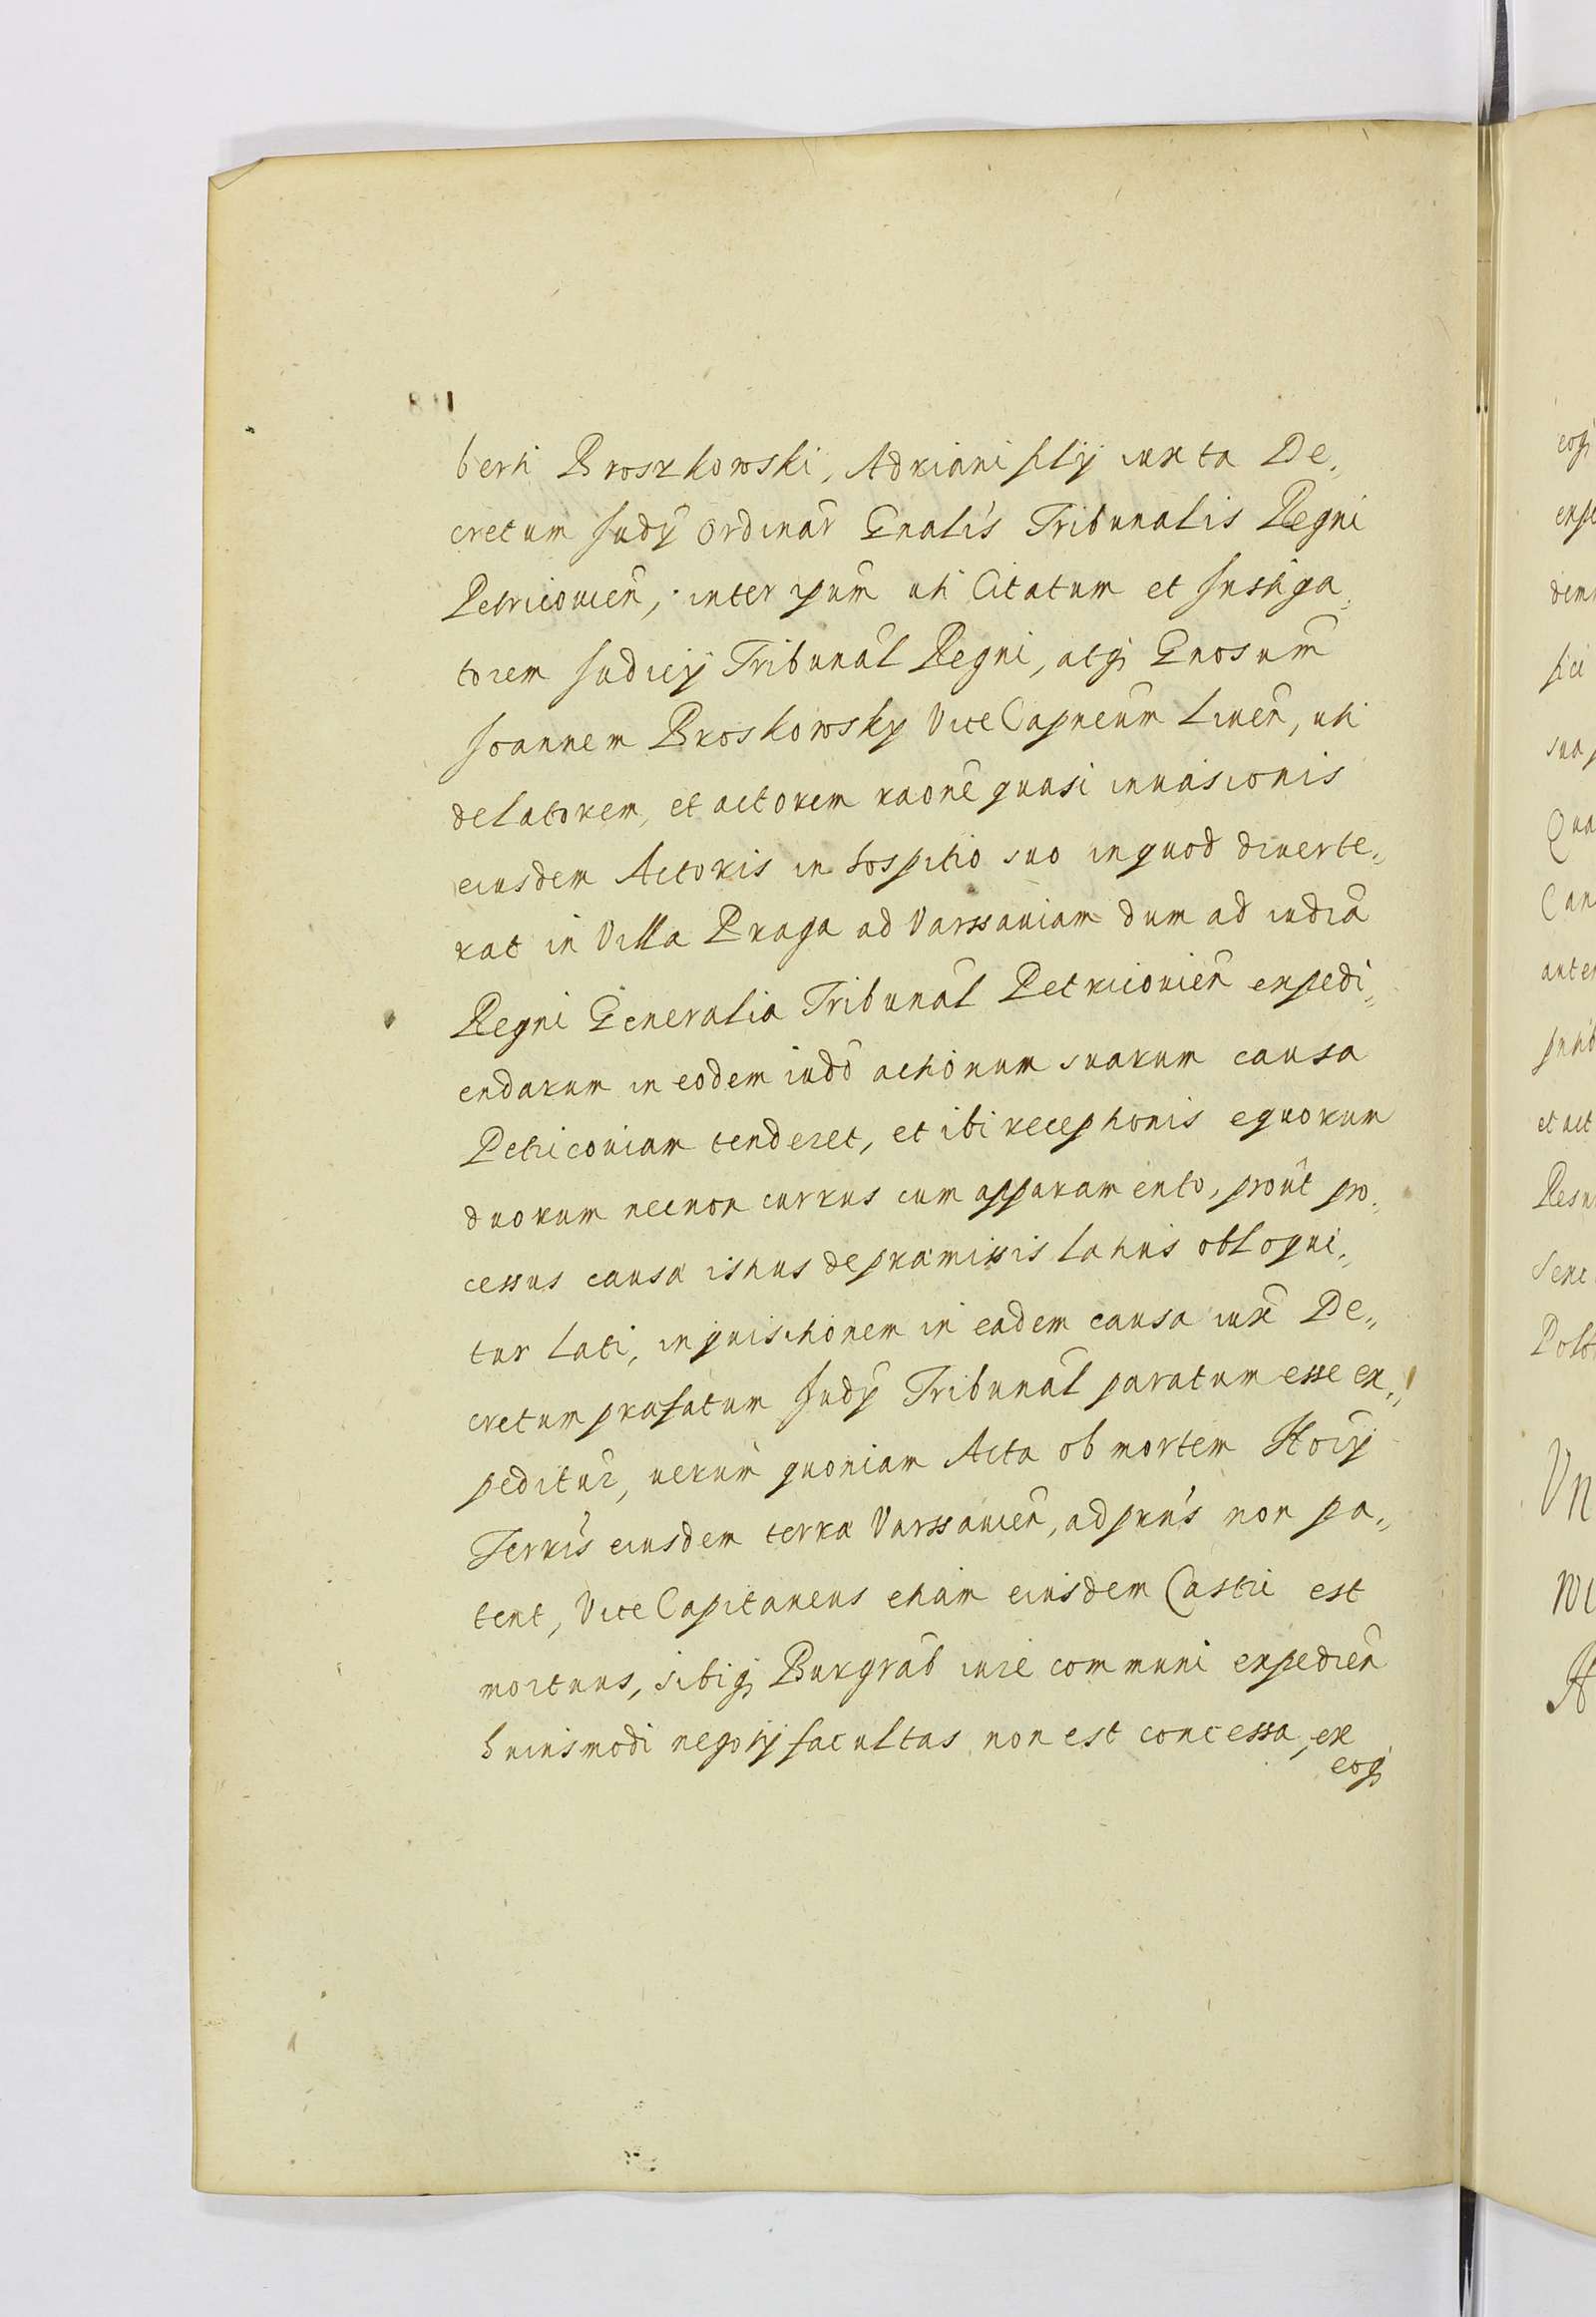 berti Broszkowski, Adriani filij iuxta De„
cretum Judÿ Ordinar Gnalis Tribunalis Regni
Petricouien, inter ipum uti Citatum et Instiga„
torem Judicÿ Tribunal Regni, atq Gnosum
Joannem Broskowsky ViceCapneum Liuen, uti
delatorem, et actorem raone quasi inuasionis
eiusdem Actoris in hospitio suo in quod diuerte„
rat in Villa Praga ad Varssauiam dum ad iudia
Regni Generalia Tribunal Petricouien expedi„
endarum in eodem iudo actionum suarum causa
Petricouiam tenderet, et ibi receptionis equorum
duorum necnon currus cum apparamento, prout pro„
cessus causæ istius de præmissis latius obloqui„
tur lati, inquisitionem in eadem causa iux De„
cretum præfatum Judÿ Tribunal paratum esse ex„
peditur, uerum quoniam Acta ob mortem Notÿ
Terris eiusdem terræ Varssauien, ad prns non pa„
tent, ViceCapitaneus etiam eiusdem Castri est
mortuus, sibiq Burgrab iure communi expedien
huiusmodi negotÿ facultas non est concessa, ex
eoq